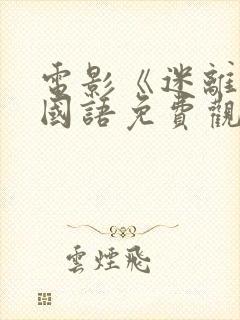 電影《迷離
國語免費觀
雲煙飛